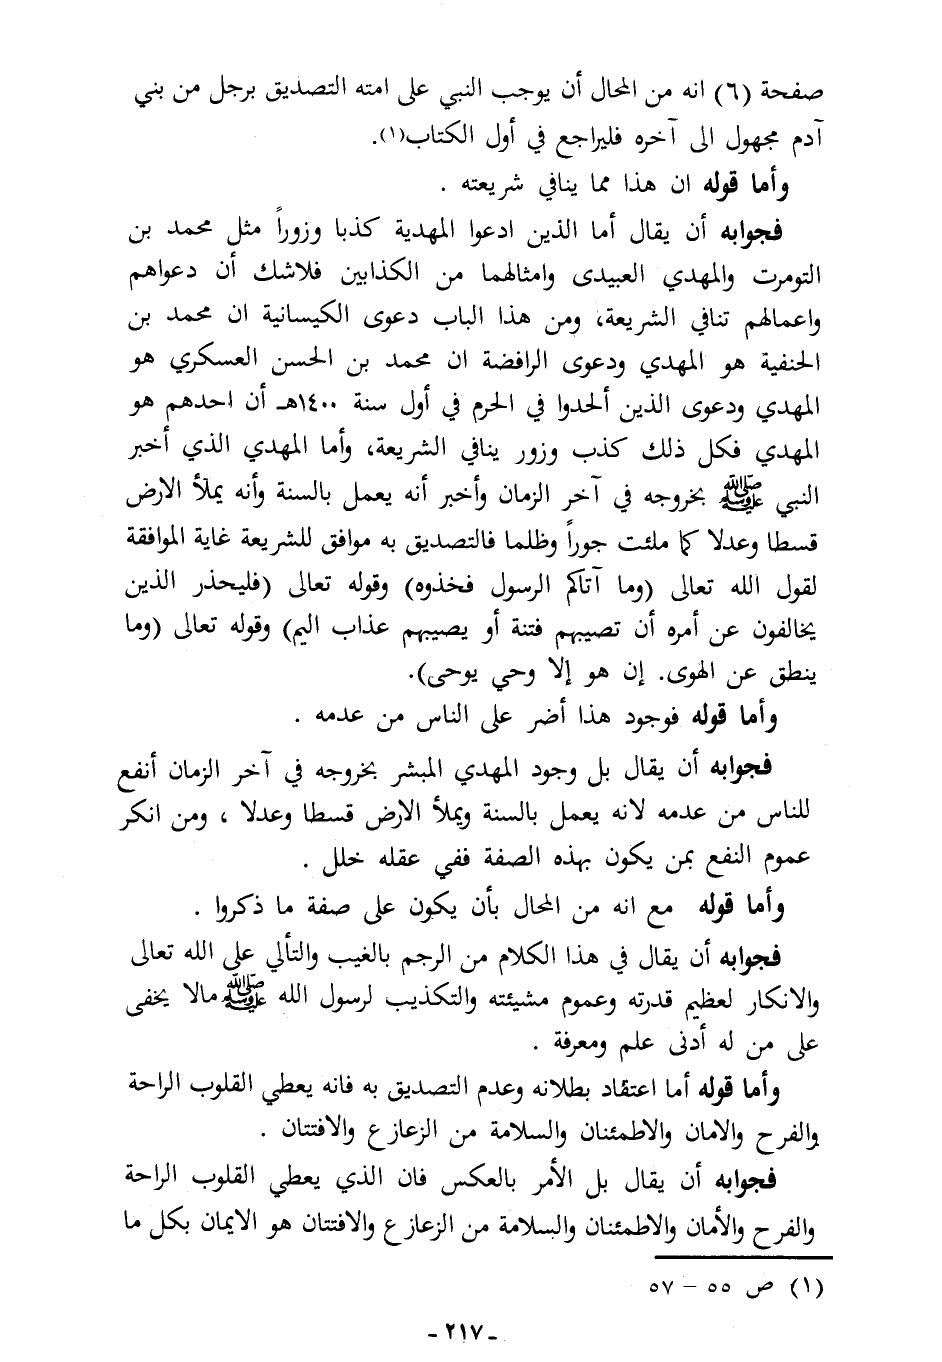 صفحة (٦) انه من المحال أن يوجب النبي على امته التصديق برجل من بني
آدم مجهول الى آخره فليراجع في أول الكتاب(١).
وأما قوله ان هذا مما ينافي شريعته .
فجوابه أن يقال أما الذين ادعوا المهدية كذبا وزوراً مثل محمد بن
التومرت والمهدي العبيدى وامثالهما من الكذابين فلاشك أن دعواهم
واعمالهم تنافي الشريعة، ومن هذا الباب دعوى الكيسانية ان محمد بن
الحنفية هو المهدي ودعوى الرافضة ان محمد بن الحسن العسكري هو
المهدي ودعوى الذين ألحدوا في الحرم في أول سنة ١٤٠٠هـ أن احدهم هو
المهدي فكل ذلك كذب وزور ينافي الشريعة، وأما المهدي الذي أخبر
النبي ﷺ بخروجه في آخر الزمان وأخبر أنه يعمل بالسنة وأنه يملأ الارض
قسطا وعدلا كما ملئت جوراً وظلما فالتصديق به موافق للشريعة غاية الموافقة
لقول الله تعالى (وما آتاكم الرسول فخذوه) وقوله تعالى (فليحذر الذين
يخالفون عن أمره أن تصيبهم فتنة أو يصيبهم عذاب اليم) وقوله تعالى (وما
ينطق عن الهوى. إن هو إلا وحي يوحى).
وأما قوله فوجود هذا أضر على الناس من عدمه .
فجوابه أن يقال بل وجود المهدي المبشر بخروجه في آخر الزمان أنفع
للناس من عدمه لانه يعمل بالسنة ويملأ الارض قسطا وعدلا ، ومن انكر
عموم النفع بمن يكون بهذه الصفة ففي عقله خلل .
وأما قوله مع انه من المحال بأن يكون على صفة ما ذكروا .
فجوابه أن يقال في هذا الكلام من الرجم بالغيب والتألي على الله تعالى
والانكار لعظيم قدرته وعموم مشيئته والتكذيب لرسول الله ﷺ مالا يخفى
على من له أدنى علم ومعرفة .
وأما قوله أما اعتقاد بطلانه وعدم التصديق به فانه يعطي القلوب الراحة
والفرح والامان والاطمئنان والسلامة من الزعازع والافتتان .
فجوابه أن يقال بل الأمر بالعكس فان الذي يعطي القلوب الراحة
والفرح والأمان والاطمئنان والسلامة من الزعازع والافتتان هو الايمان بكل ما
(١) ص ٥٥ – ٥٧
- ٢١٧ -